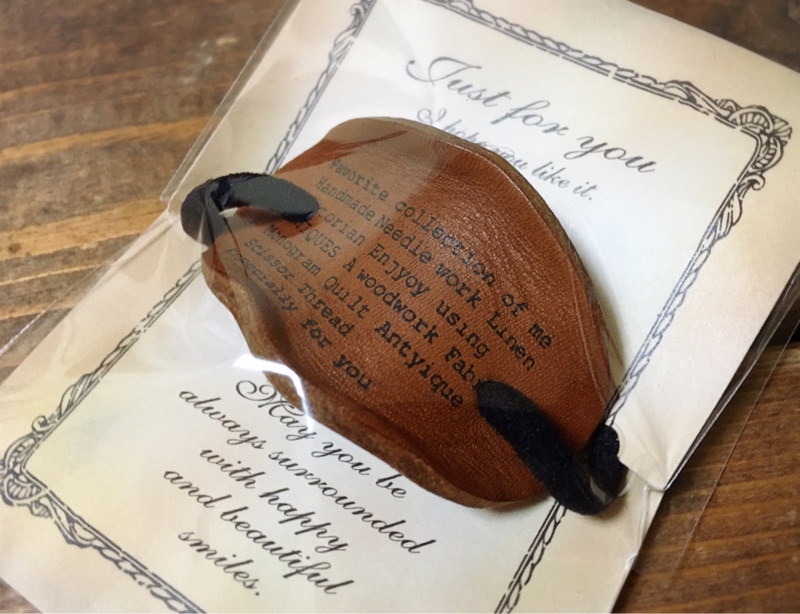 Just for you
I hope you like it.
Favorite collection of me
Handmade Needle work Linen
torian Enjyoy using
QUES A woodwork Fab
Monogram Quilt Antyique
Scissor Thread
Specially for you
May you be
always surrounded
with happy
and beautiful
smiles.